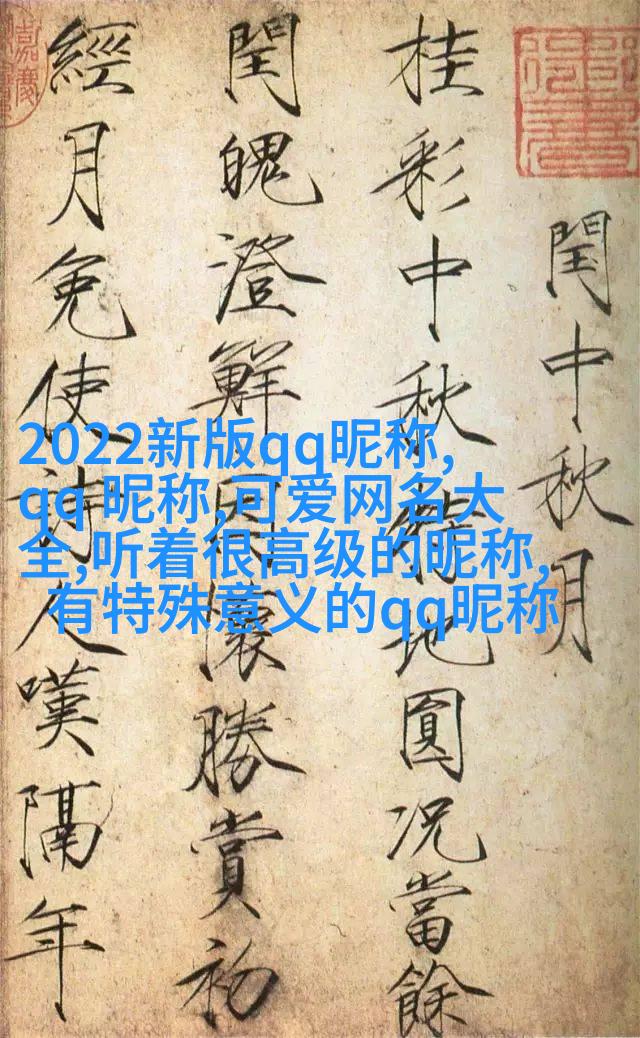 閏中秋月
桂彩中秋特地圓況當餘
閏魄澄鮮因懷勝賞初
經月免使詩人嘆隔年
2022新版qq昵称,
qq 昵称,可爱网名大
全,听着很高级的昵称,
有特殊意义的qq昵称